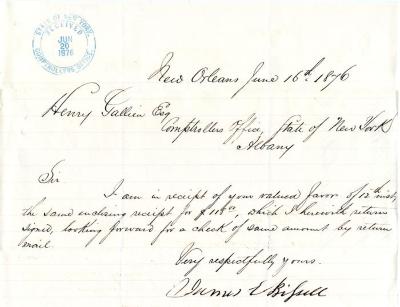 STATE OF NEW YORK
RECEIVED
JUN
20
1876
COMPTROLLER'S OFFICE
New Orleans June 16th 1876
Henry Gallien Esq
Comptrollers Office, State of New York
Albany
Sir
I am in receipt of your valued favor of 12th inst,
the same enclosing receipt for $ which I herewith return
signed, looking forward for a check of same amount by return
mail.
Very respectfully yours.
James